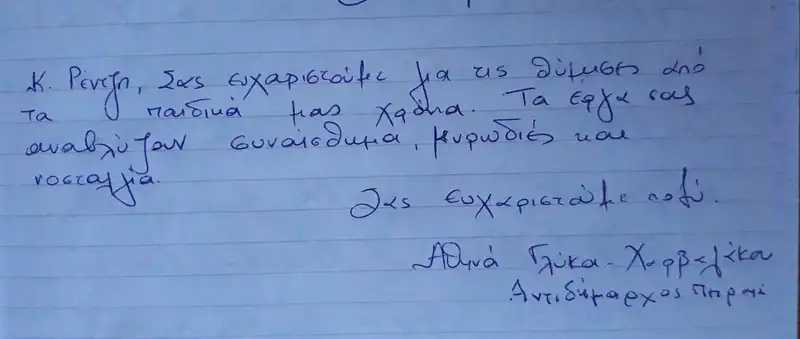 κ. Ρέντζη, Σας ευχαριστούμε για τις θύμησες από
τα παιδικά μας χρόνια. Τα έργα σας
αναβλύζαν συναίσθημα, μυρωδιές και
νοσταλγία.
Σας ευχαριστούμε πολύ.
Αθηνά Γλύκα - Χαρβαλάκου
Αντιδήμαρχος Πειραιά